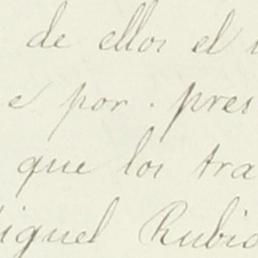 de ellos el
e por. pres
que los tra
iguel Rubio